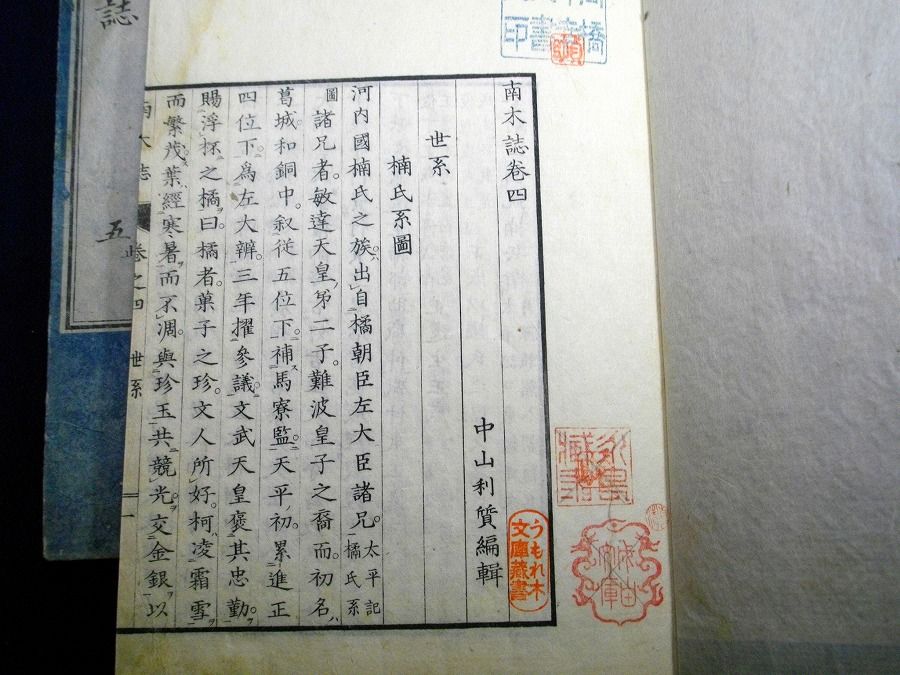 南木誌卷四
中山利質編輯
世系
楠氏系圖
河內國楠氏之族。出自橘朝臣左大臣諸兄。太平記橘氏系
圖諸兄者。敏達天皇第二子。難波皇子之裔而。初名ハ
葛城和銅中。叙從五位下。補馬寮監。天平初。累進正
四位下。爲左大辨。三年擢參議。文武天皇褒其忠勤。
賜浮杯之橘。曰。橘者。菓子之珍。文人所好。柯凌霜雪ヲ
而繁茂。葉經寒暑ヲ而不凋。與珍玉共競光ヲ。交金銀以
南木誌
卷之四
世系
一
うもれ木
文庫藏書
誌
五